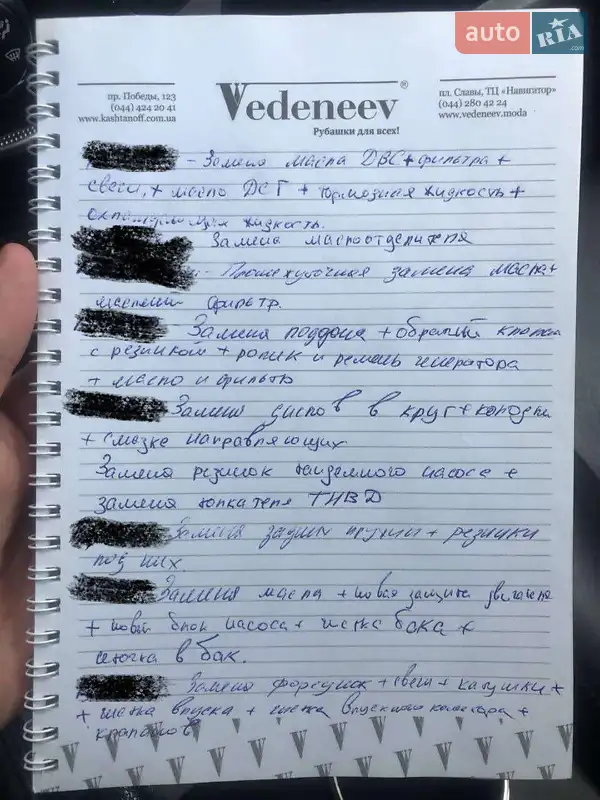 auto RIA.com
пр. Победы, 123
(044) 424 20 41
www.kashtanoff.com.ua
Vedeneev®
Рубашки для всех!
пл. Славы, ТЦ «Навигатор»
(044) 280 42 24
www.vedeneev.moda
- Замена масла ДВС + фильтра +
свечи, + масло ДСГ + тормозная жидкость +
охлаждающая жидкость.
Замена маслоотделителя
- Промежуточная замена масла +
масляный фильтр.
Замена поддона + обратный клапан
с резинкой + ролик и ремень генератора
+ масло и фильтр
Замена дисков в круг + колодки
+ смазка направляющих
Замена резинок тандемного насоса +
замена толкателя ТНВД
Замена задних пружин + резинки
под них.
Замена масла + новая защита двигателя
+ новый блок насоса + чистка бака +
сеточка в бак.
Замена форсунок + свечи + катушки +
+ чистка впуска + чистка впускного коллектора +
клапанов